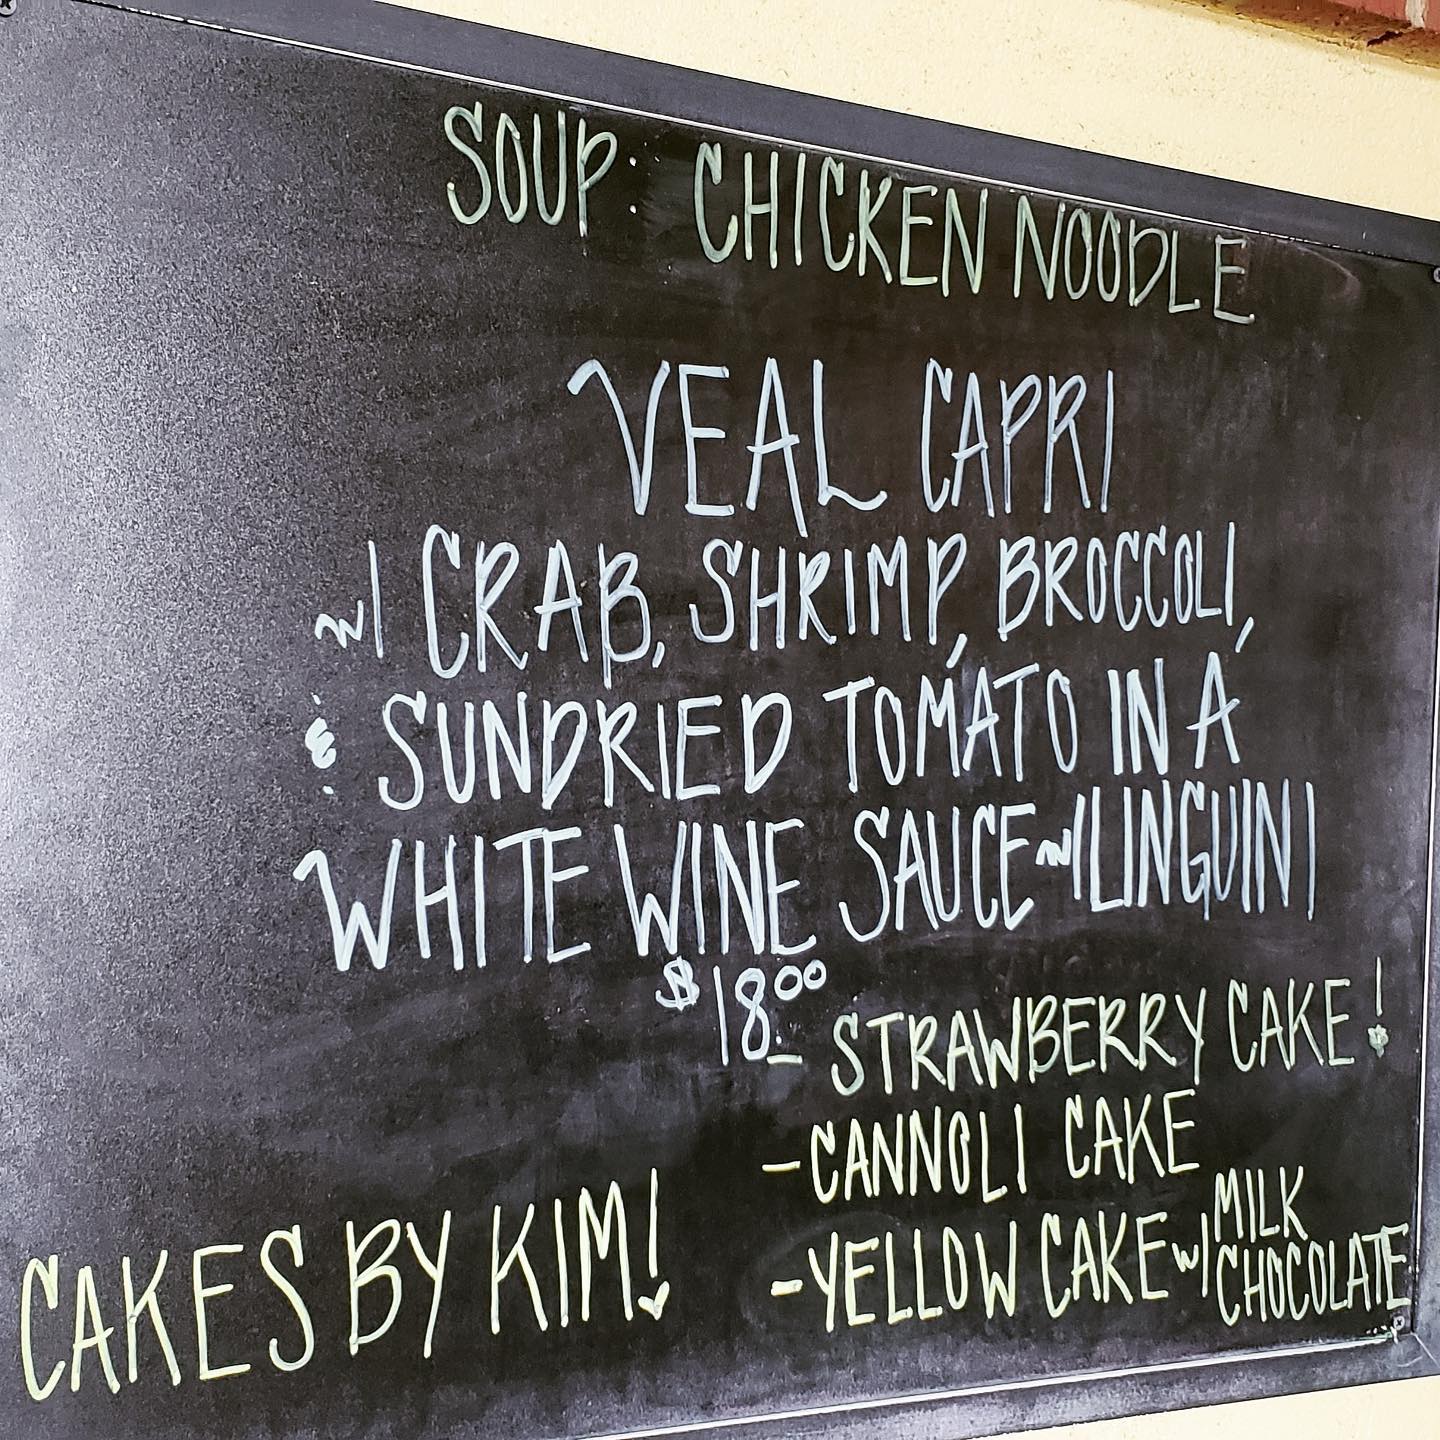 SOUP: CHICKEN NOODLE
VEAL CAPRI
w/ CRAB, SHRIMP, BROCCOLI,
& SUNDRIED TOMATO IN A
WHITE WINE SAUCE w/ LINGUINI
$18.00
- STRAWBERRY CAKE!
- CANNOLI CAKE
- YELLOW CAKE w/ MILK CHOCOLATE
CAKES BY KIM!